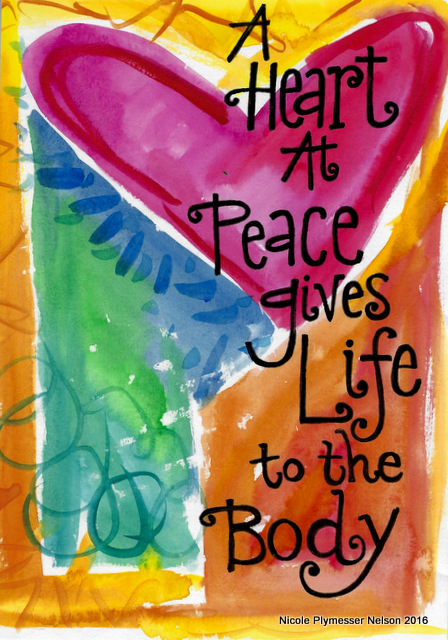 A
Heart
At
Peace
gives
Life
to the
Body
Nicole Plymesser Nelson 2016